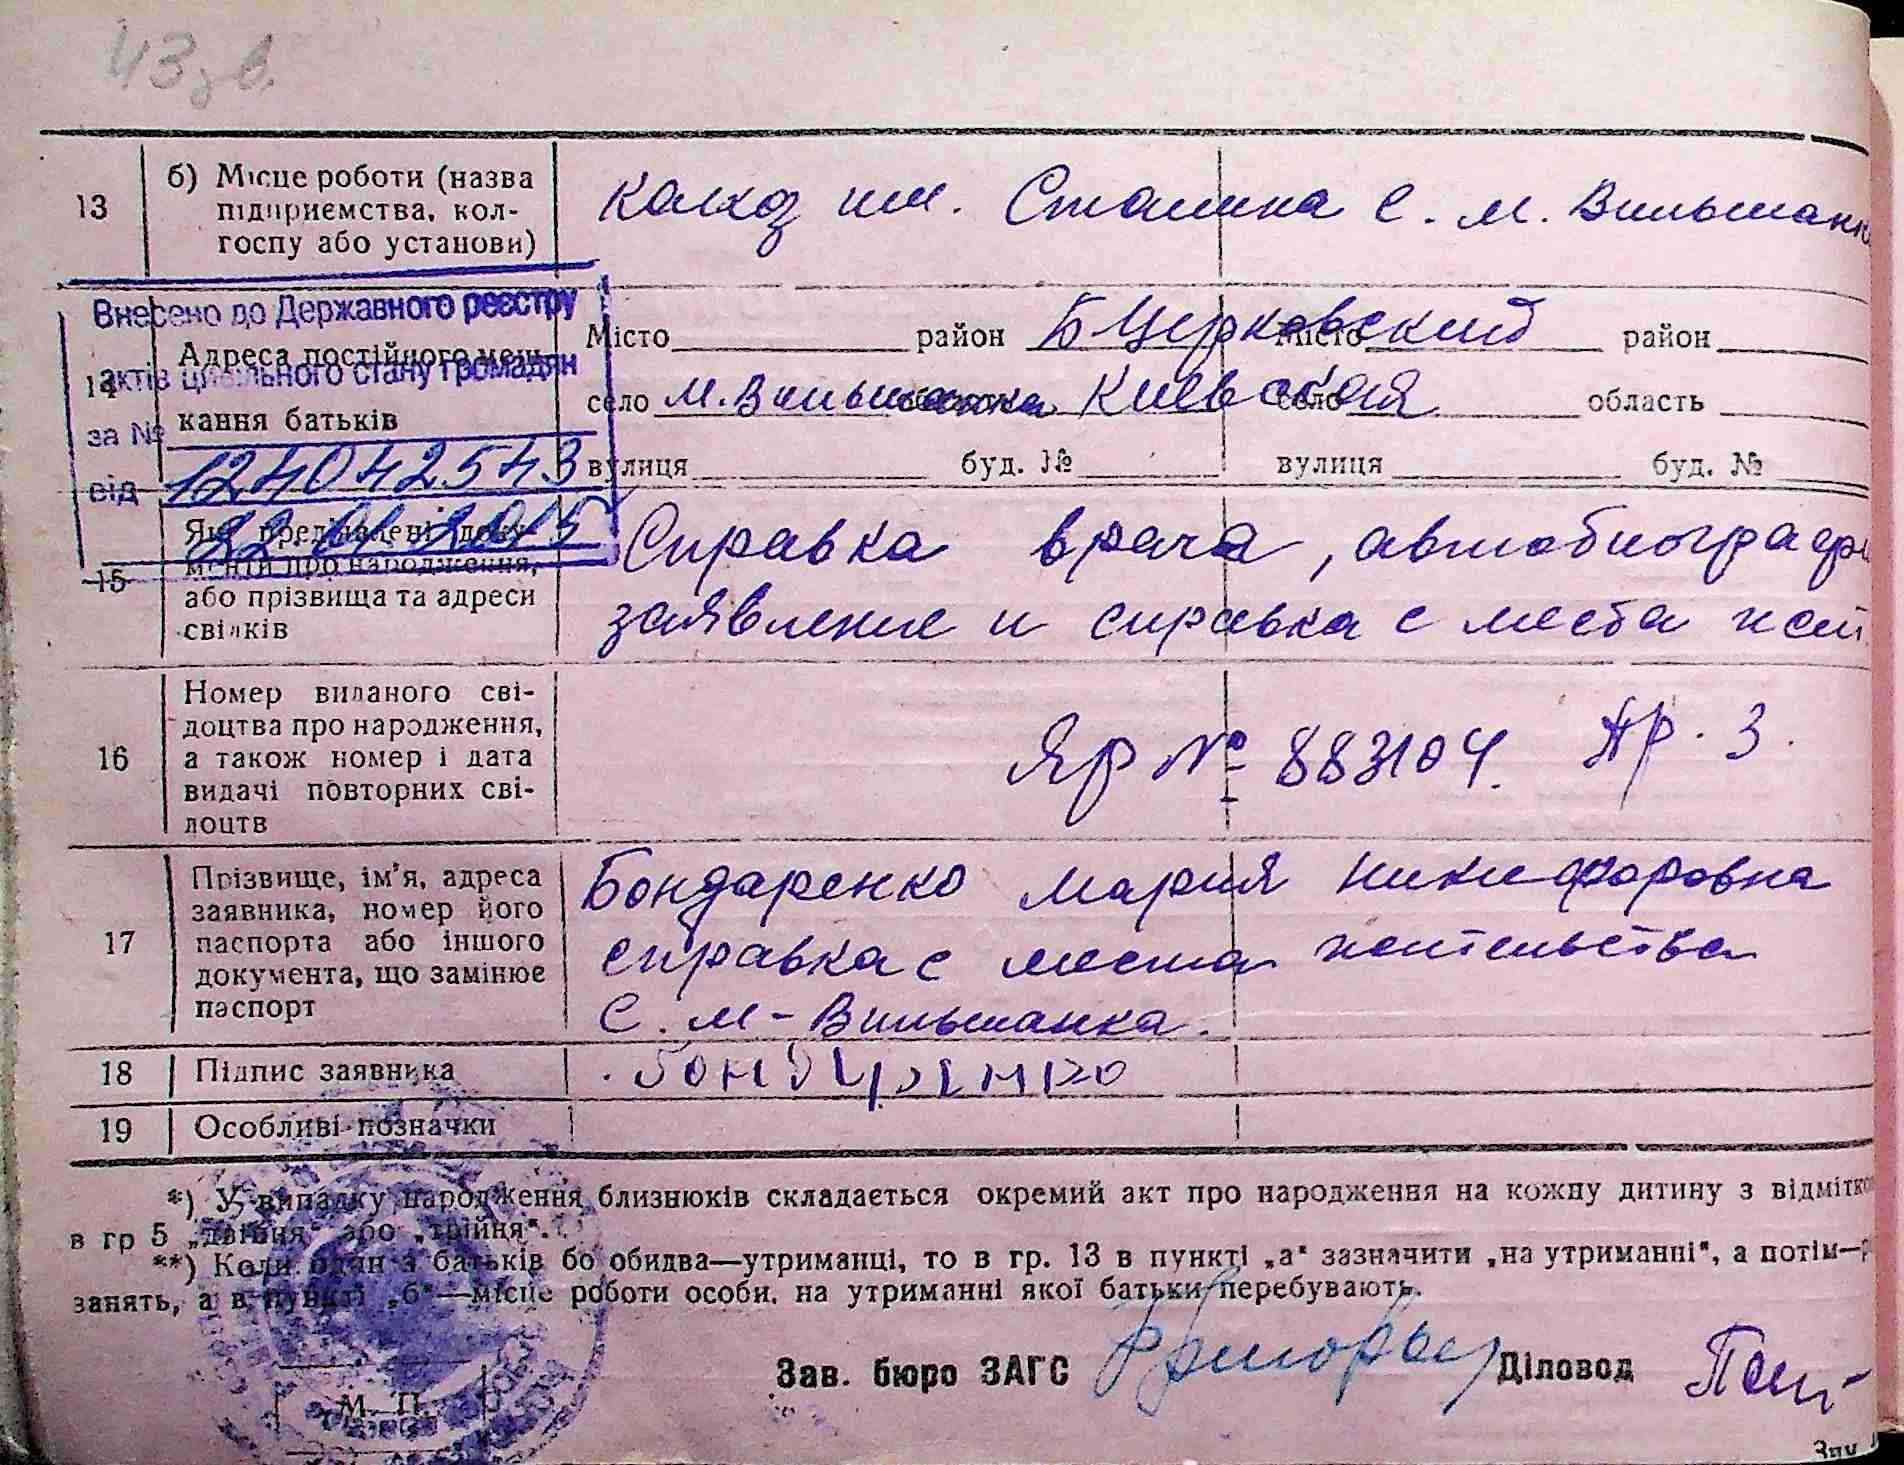 43 зв.
13
б) Місце роботи (назва
підприємства, кол-
госпу або установи)
колхоз им. Сталина с. м. Вильшанк
Внесено до Державного реєстру
актів цивільного стану громадян
за № 124042543
від 22.01.2015
14
Адреса постійного меш-
кання батьків
Місто район Б Церковский Місто район
село М. Вильшанка Киевская село область
вулиця буд. № вулиця буд. №
15
Які пред'явлені доку-
менти про народження,
або прізвища та адреси
свідків
Справка врача, автобиограф
заявление и справка с места жит
16
Номер виданого сві-
доцтва про народження,
а також номер і дата
видачі повторних сві-
доцтв
Яр № 883104. Пр. 3.
17
Прізвище, ім'я, адреса
заявника, номер його
паспорта або іншого
документа, що замінює
паспорт
Бондаренко Мария Никифоровна
справка с места жительства
С. М-Вильшанка.
18
Підпис заявника
Бондаренко
19
Особливі позначки
*) У випадку народження близнюків складається окремий акт про народження на кожну дитину з відмітко
в гр 5 „двійня" або „трійня".
**) Коли один з батьків бо обидва—утриманці, то в гр. 13 в пункті „а" зазначити „на утриманні", а потім—р
занять, а в пункті „б"—місце роботи особи, на утриманні якої батьки перебувають.
Зав. бюро ЗАГС Діловод
М. П.